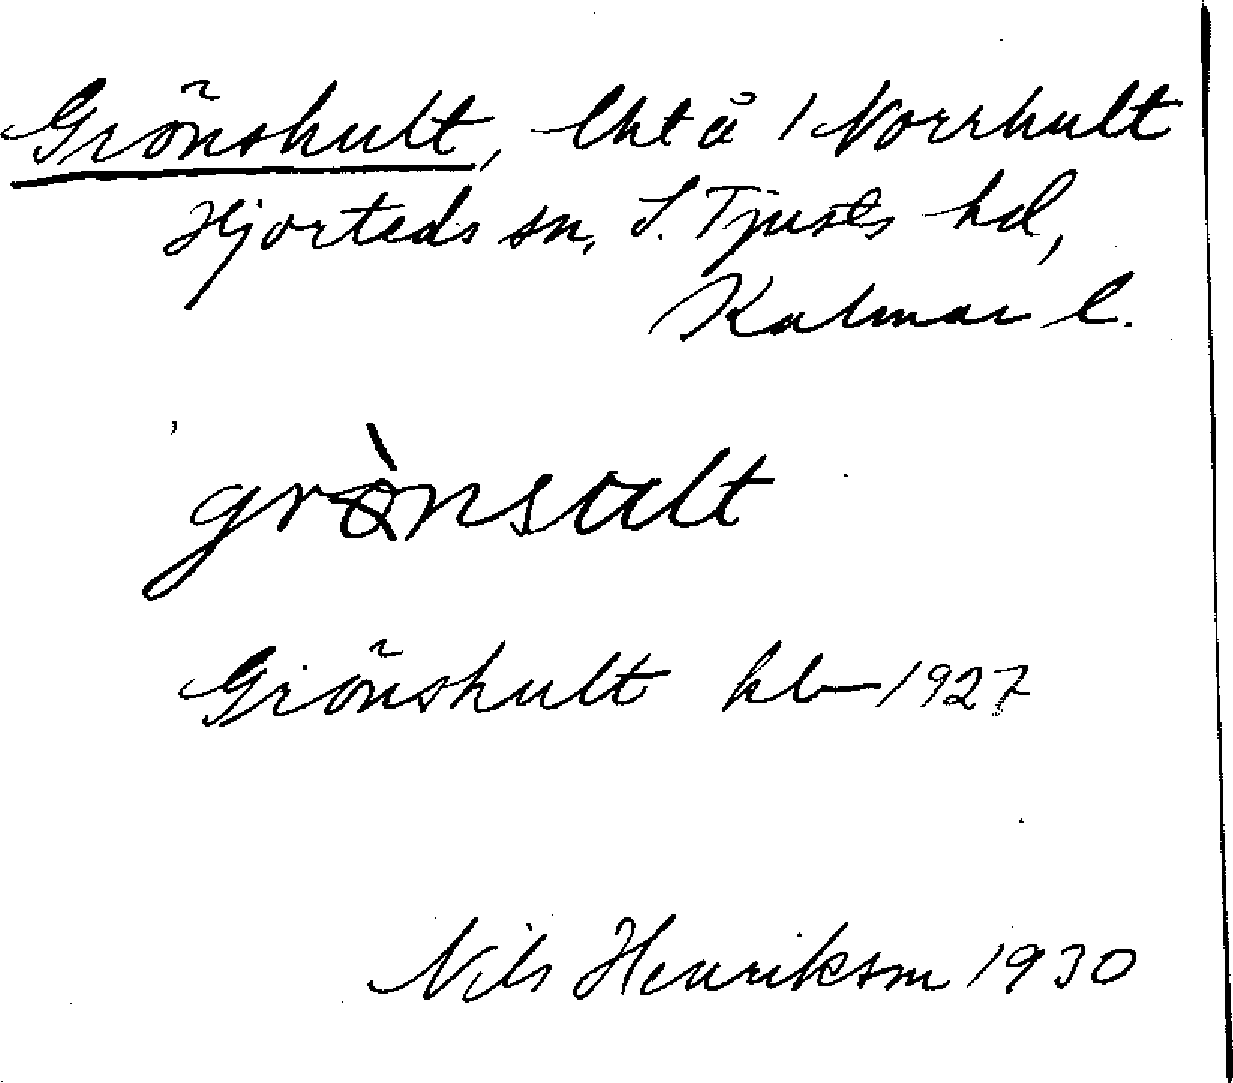 Grönshult, lht å 1 Norrhult
Hjorteds sn, S. Tjusts hd,
Kalmar l.
grö̀nsult
Grönshult kb 1927
Nils Henrikson 1930